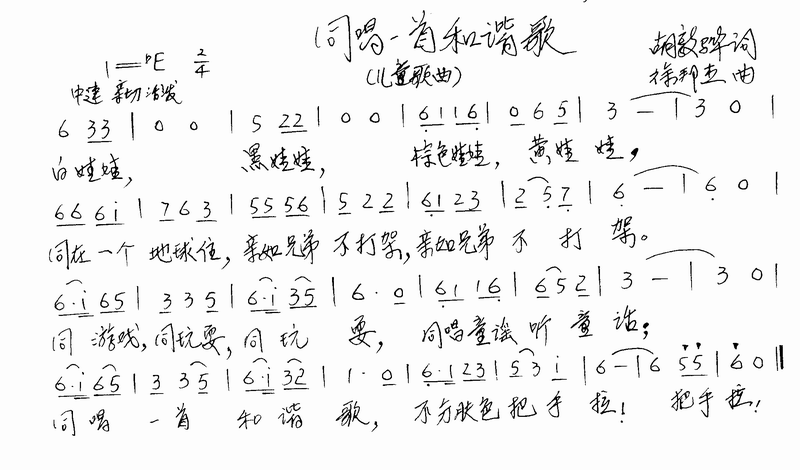 同唱一首和谐歌
(儿童歌曲)
1=♭E 2/4
中速 亲切 活发
胡敦骅 词
徐邦杰 曲
6 33 | 0 0 | 5 22 | 0 0 | 6116 | 0 6 5 | 3 — | 3 0 |
白娃娃, 黑娃娃, 棕色娃娃, 黄娃娃,
66 6i | 7 6 3 | 55 56 | 5 2 2 | 61 23 | 2 5 7 | 6 — | 6 0 |
同在一个地球住, 亲如兄弟不打架, 亲如兄弟不打架。
6·i 65 | 3 3 5 | 6·i 35 | 6· 0 | 61 16 | 6 5 2 | 3 — | 3 0 |
同游戏, 同玩耍, 同玩耍, 同唱童谣听童话;
6·i 65 | 3 3 5 | 6·i 32 | 1· 0 | 6·1 23 | 5 3 i | 6 — | 6 55 | 6 0 ‖
同唱一首和谐歌, 不分肤色把手拉! 把手拉!